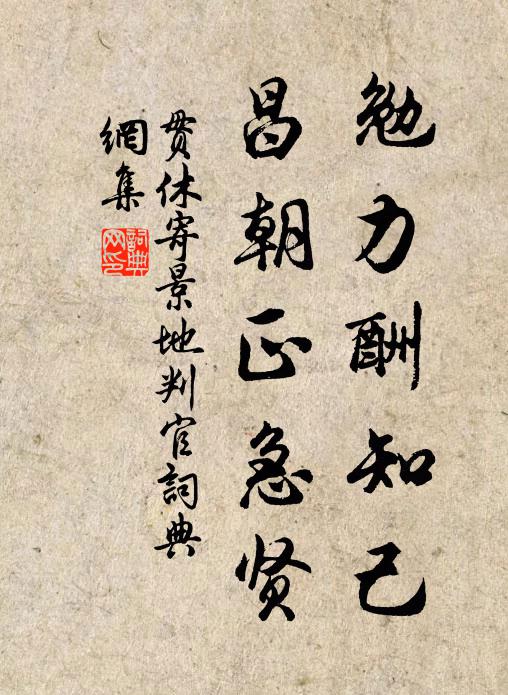 勉力酬知己
昌朝正急贤
贯休寄景地判官詞典
網集
詞典
网印